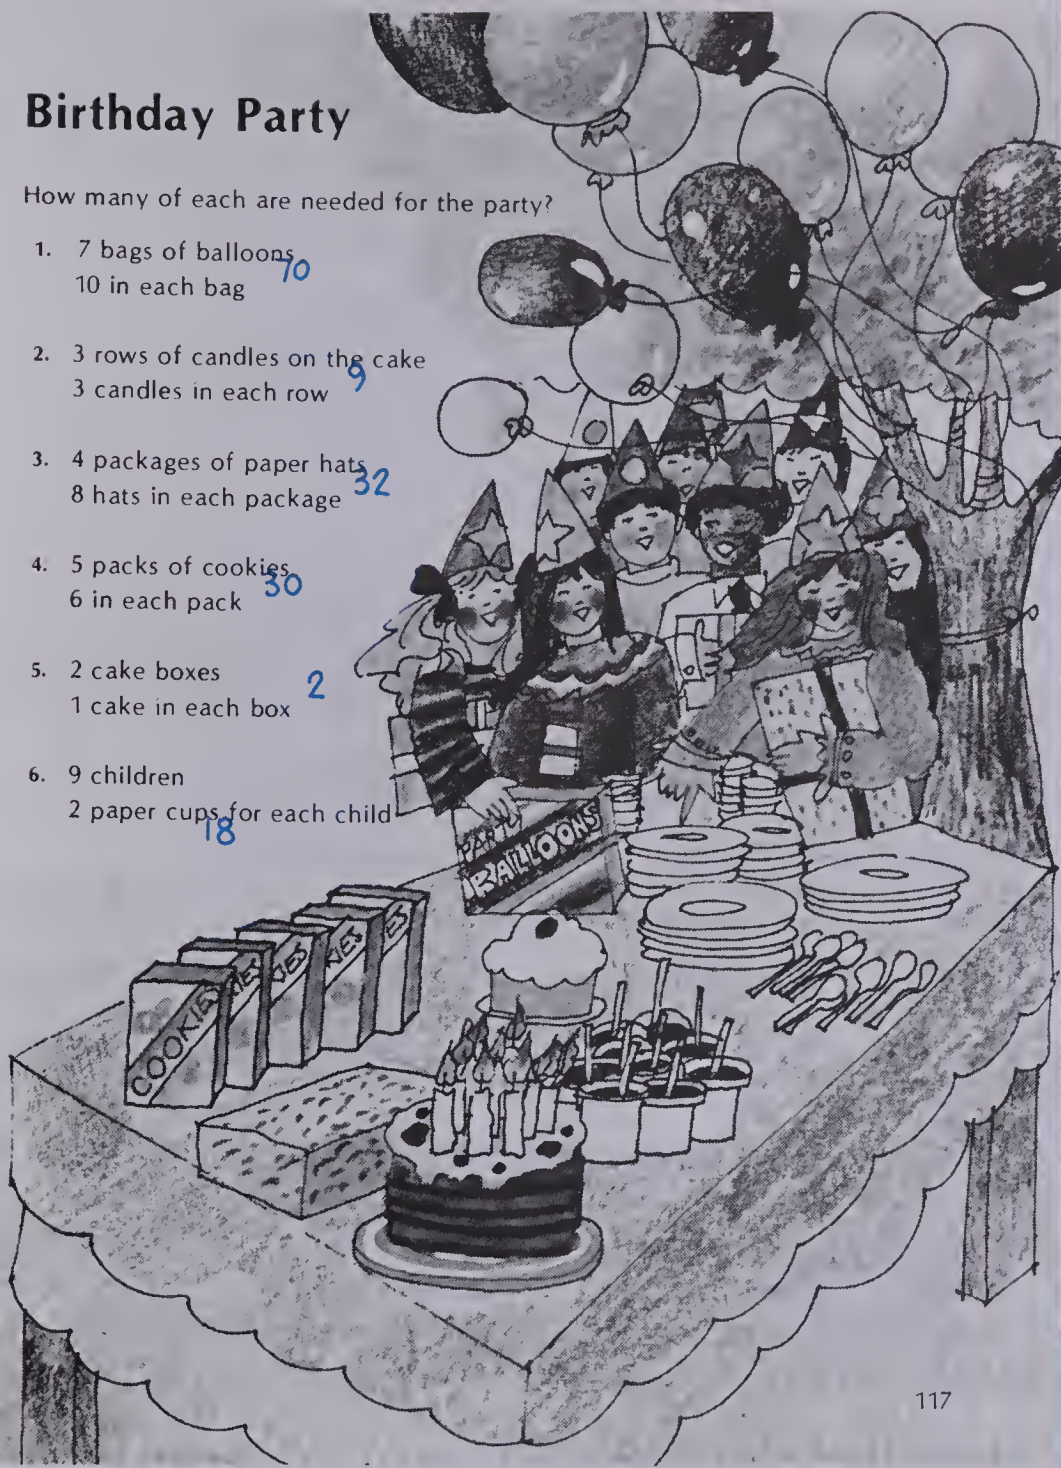 Birthday Party
How many of each are needed for the party?
1. 7 bags of balloons
70
10 in each bag
2. 3 rows of candles on the cake
9
3 candles in each row
3. 4 packages of paper hats
32
8 hats in each package
4. 5 packs of cookies
30
6 in each pack
5. 2 cake boxes
2
1 cake in each box
6. 9 children
2 paper cups for each child
18
BALLOONS
COOKIES
117